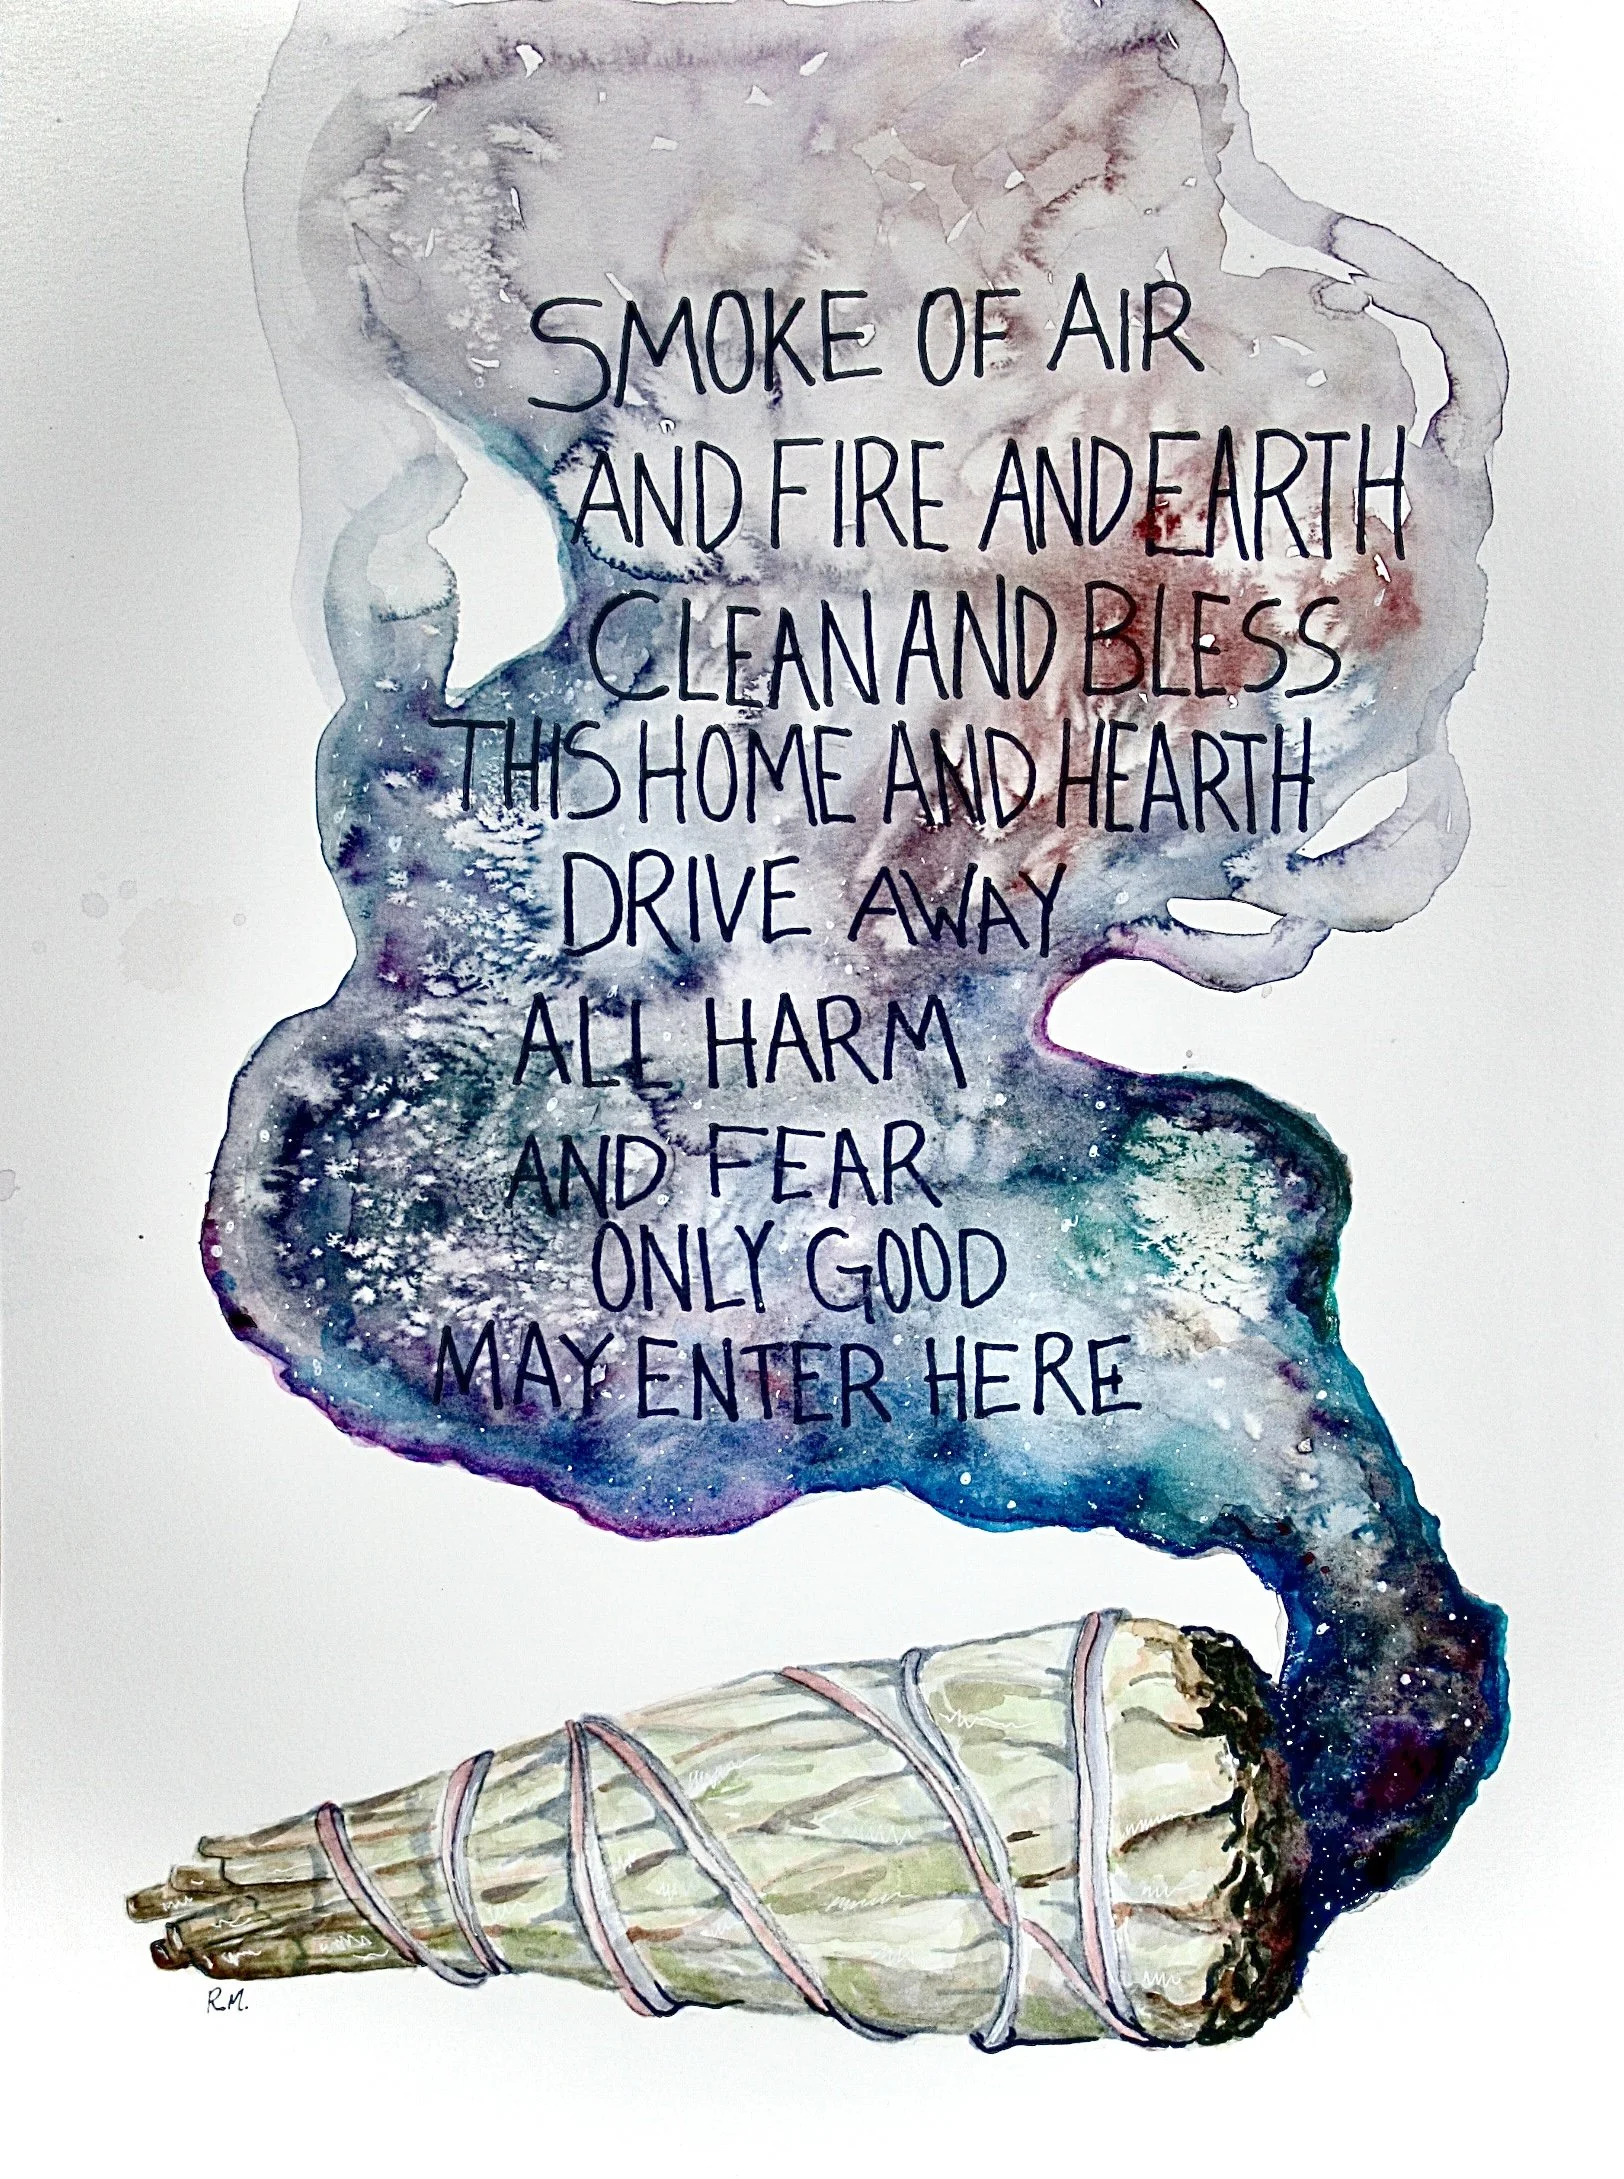 SMOKE OF AIR
AND FIRE AND EARTH
CLEAN AND BLESS
THIS HOME AND HEARTH
DRIVE AWAY
ALL HARM
AND FEAR
ONLY GOOD
MAY ENTER HERE
R.M.